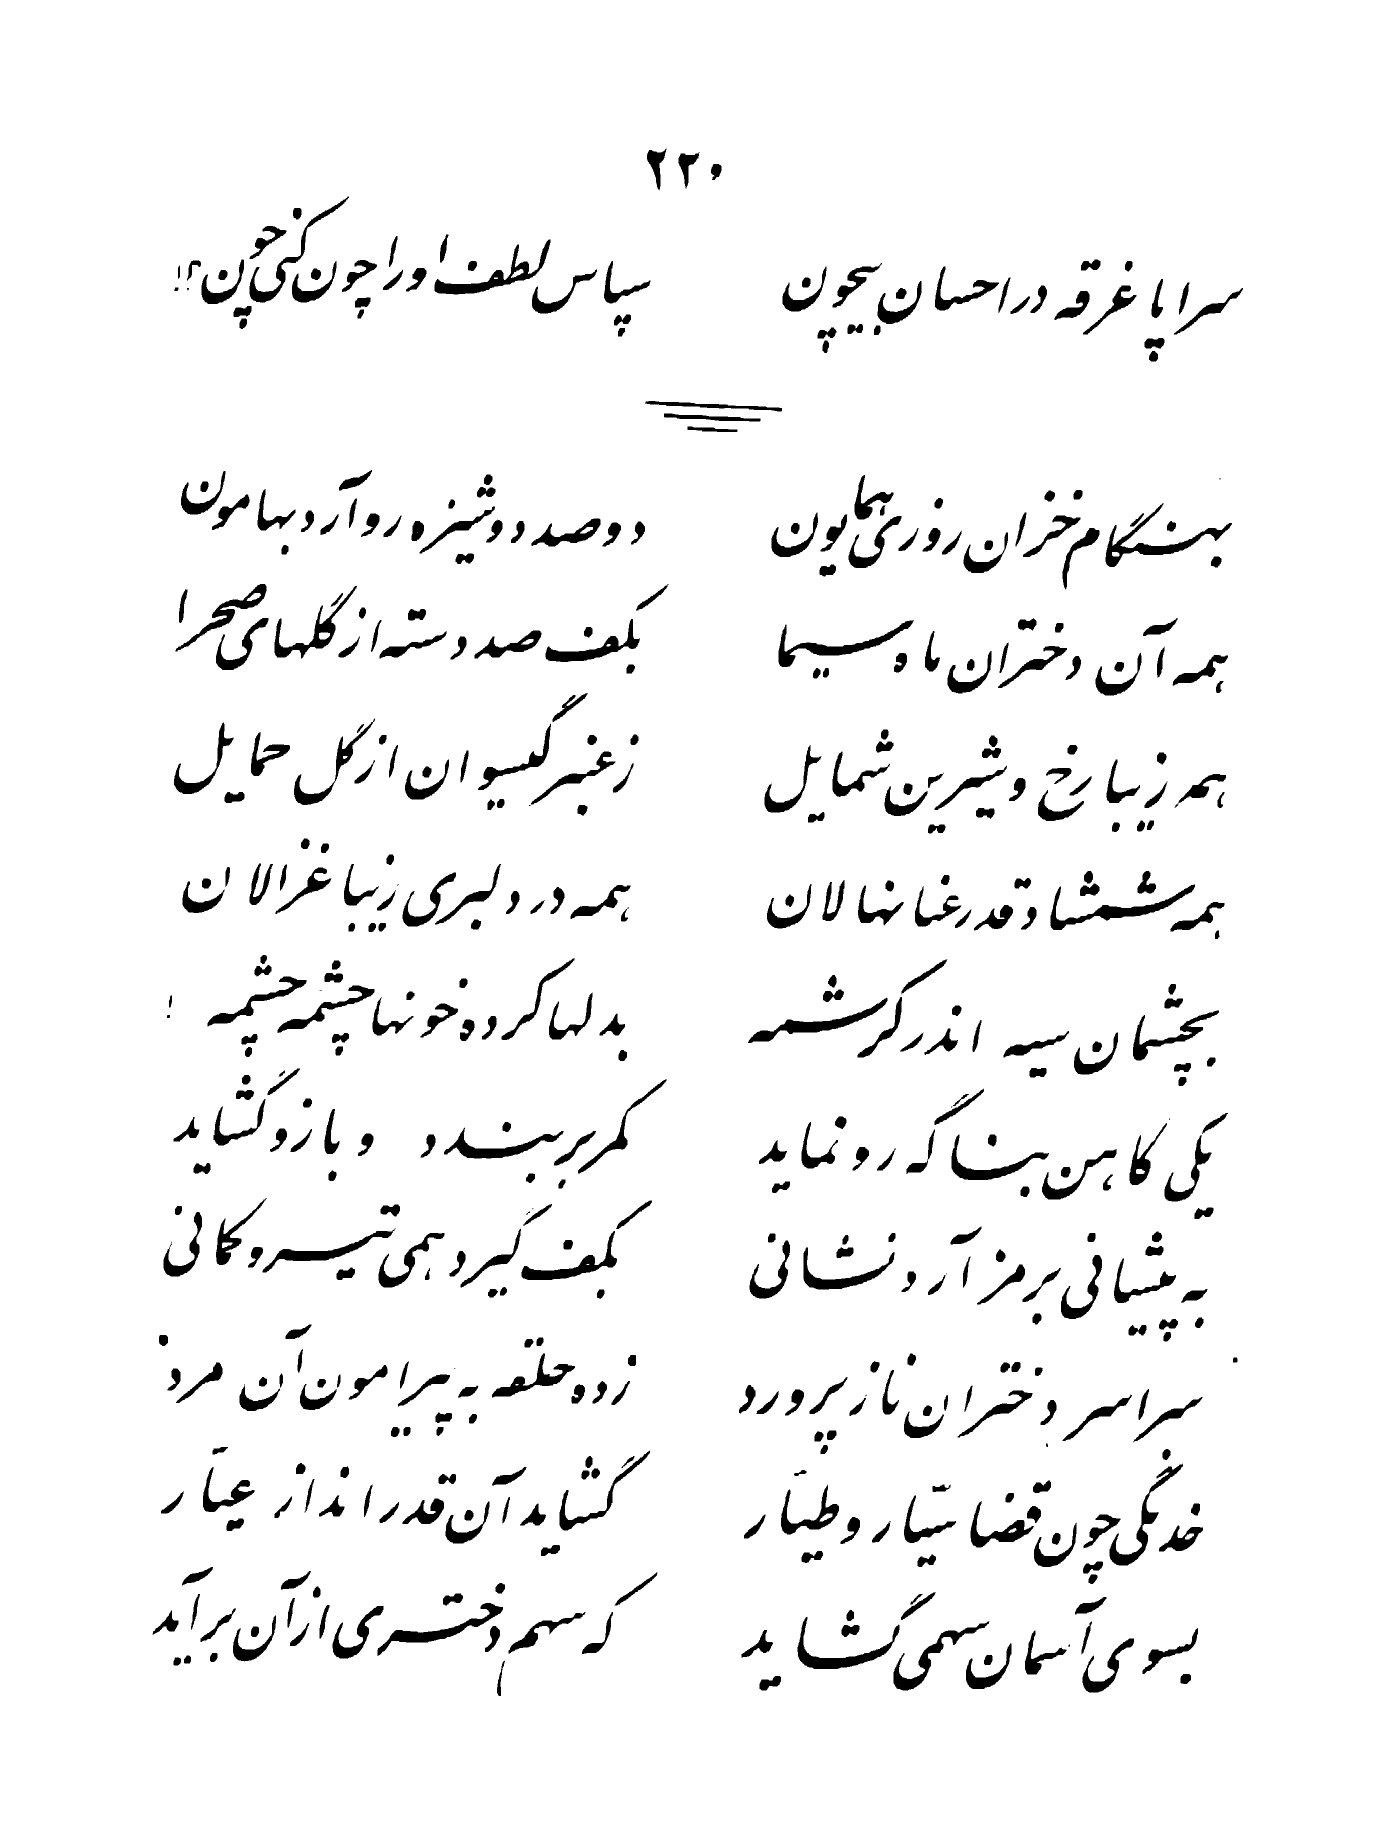 ۲۲۰
سراپا غرقه در احسان بیچون سپاس لطف او را چون کنی چون ؟!
بهنگام خزان روزی همایون دو صد دوشیزه رو آرد بهامون
همه آن دختران ماه سیما بکف صد دسته از گلهای صحرا
همه زیبا رخ و شیرین شمایل ز عنبر گیسوان از گل حمایل
همه شمشاد قد رعنا نهالان همه در دلبری زیبا غزالان
بچشمان سیه اندر کرشمه بدلها کرده خونها چشمه چشمه !
یکی کاهن بناگه رو نماید کمر بربندد و بازو گشاید
به پیشانی برمز آرد نشانی بکف گیرد همی تیر و کمانی
سراسر دختران ناز پرورد زده حلقه به پیرامون آن مرد
خدنگی چون قضا سیّار و طیّار گشاید آن قدر انداز عیّار
بسوی آسمان سهمی گشاید که سهم دختری از آن برآید